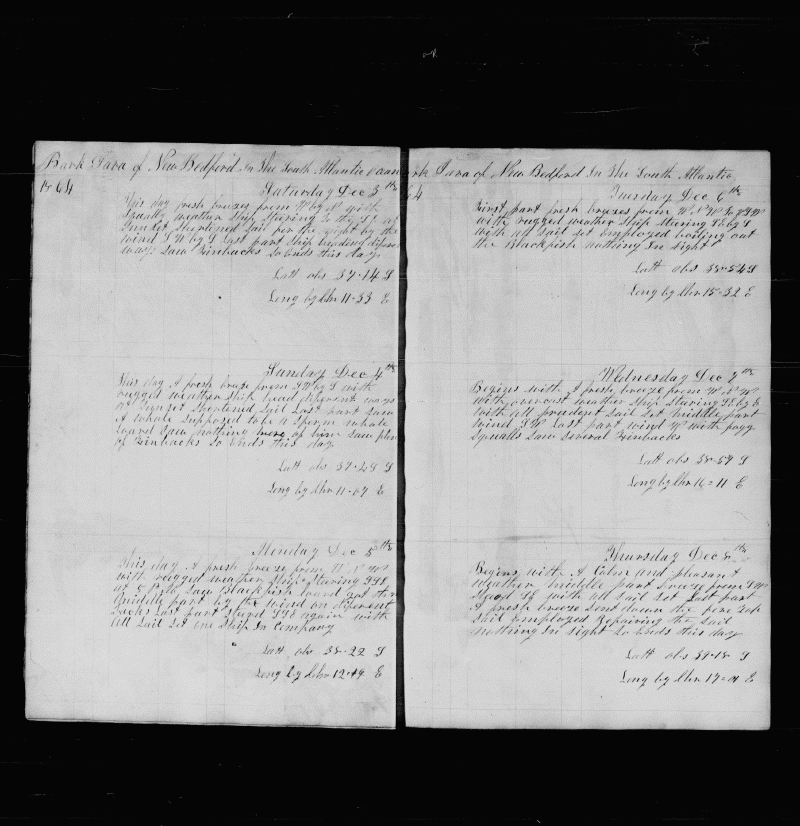 Bark Java of New Bedford In The South Atlantic Ocean
1864
Saturday Dec 3th
This day fresh breezes from W by N with
Squally weather Ship Steering to the SE at
Sunset Shortened Sail for the night by the
wind S W by S Last part Ship heading diferent
ways Saw Finbacks So Ends this day
Latt obs 37-14 S
Long by Chr 11-33 E
Sunday Dec 4th
This day A fresh breeze from SW by S with
rugged weather Ship head diferent ways
at Sunset Shortened Sail Last part Saw
A whale Supposed to be a Sperm whale
Saw nothing more of him Saw plenty
of Finbacks So Ends this day
Latt obs 37-25 S
Long by Chr 11-07 E
Monday Dec 5th
This day A fresh breeze from W N W
with rugged weather Ship Steering SSE
at 5 PM Saw Blackfish
middle part by the wind on diferent
tacks Last part Steerd SSE again with
All Sail Set one Ship In Company
Latt obs 38-22 S
Long by Chr 12-49 E
Bark Java of New Bedford In The South Atlantic
64
Tuesday Dec 6th
First part fresh breezes from W N W to WSW
with rugged weather Ship Steering SE by S
with all Sail Set Employed boiling out
the Blackfish nothing In Sight
Latt obs 38-54 S
Long by Chr 15-32 E
Wednesday Dec 7th
Begins with A fresh breeze from W N W
with overcast weather Ship Steering SE by E
with all prudent Sail Set middle part
wind SW Last part wind W with foggy
Squalls Saw Several Finbacks
Latt obs 38-59 S
Long by Chr 16=11 E
Thursday Dec 8th
Begins with A Calm and pleasant
weather middle part breeze from SW
Steerd SE with all Sail Set Last part
A fresh breeze Sent down the fore top
Sail Employed Repairing the Sail
nothing In Sight So Ends this day
Latt obs 39-18 S
Long by Chr 17=01 E